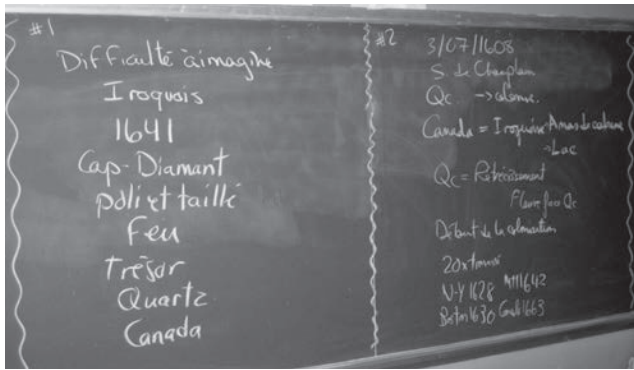 #1
Difficulté à imaginé
Iroquois
1641
Cap-Diamant
poli et taillé
Feu
Trésor
Quartz
Canada
#2
3/07/1608
S. de Champlain
Qc → colonie.
Canada = Iroquoise Amas de cabane
→ Lac
Qc = Rétrécissement
Fleuve Qc
Début de la colonisation
20x
N-Y 1628 Mtl 1642
Boston 1630 1663